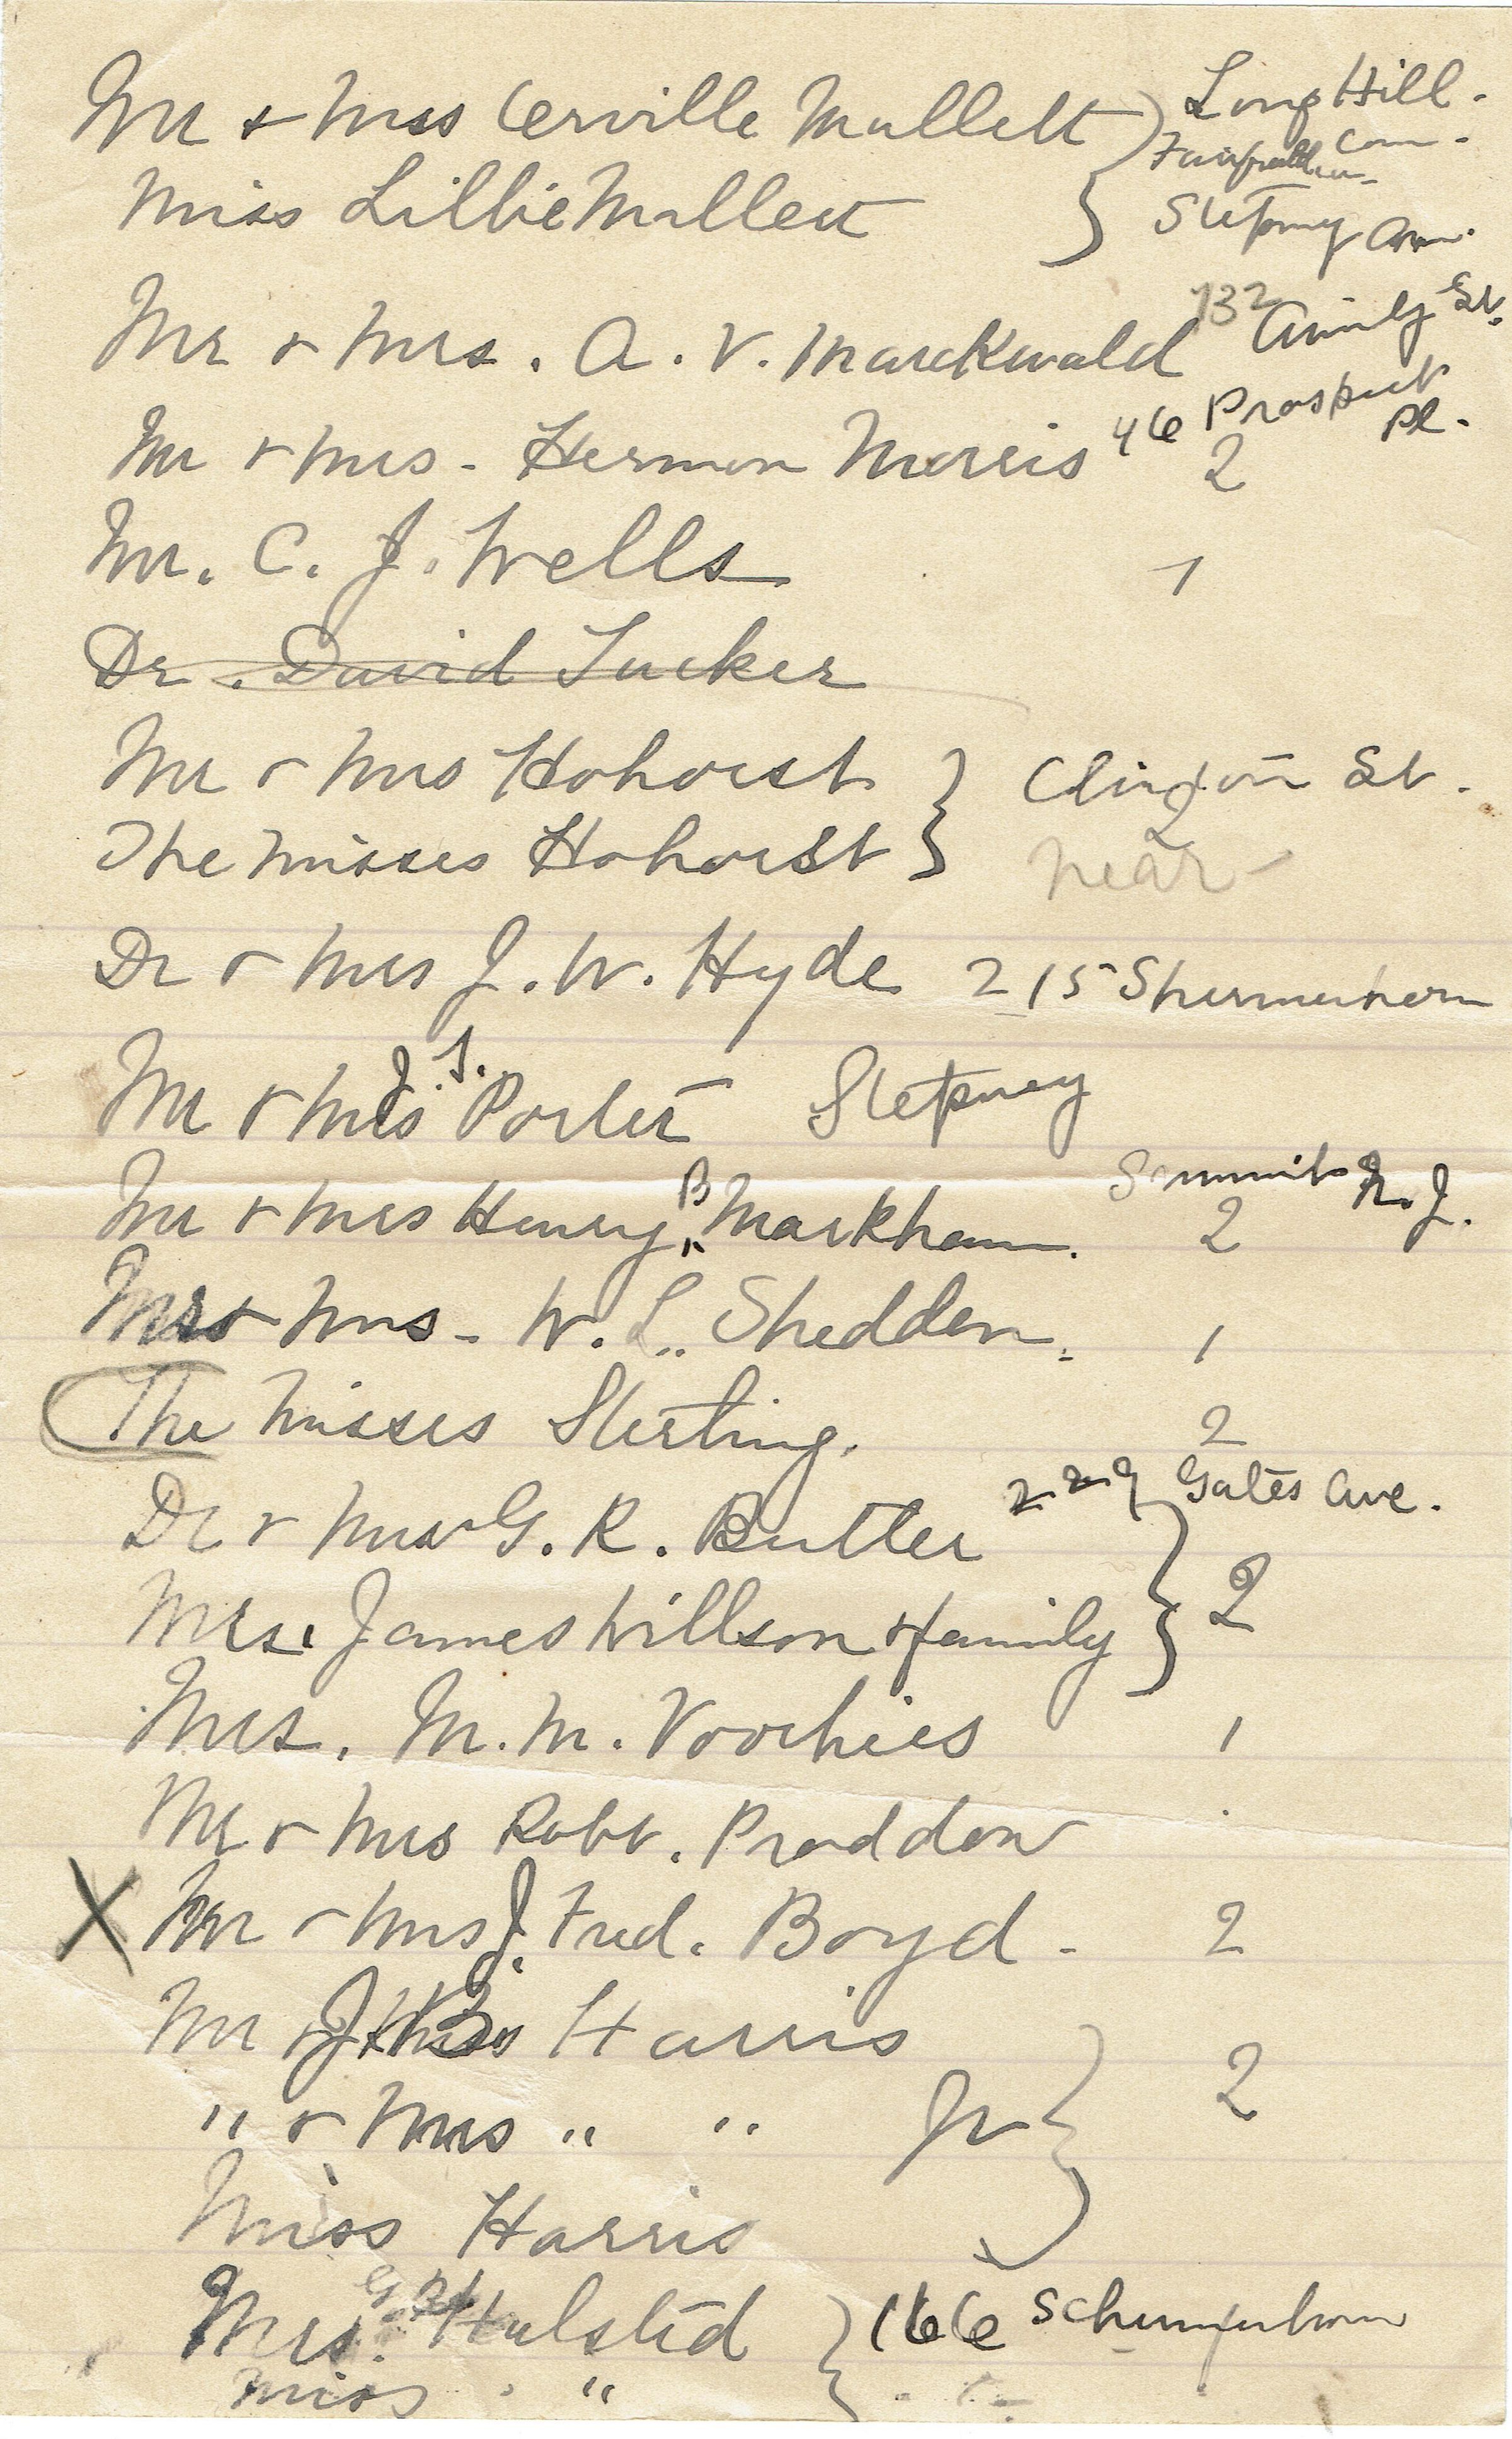 Mr & Mrs Cerville Mallett } Long Hill.
Conn.
Miss Lillie Mallett } Stepney Conn.
Mr & Mrs. A. V. Marckwald 132 Amity St.
Mr & Mrs - Herman Morris 46 Prospect Pl.
2
Mr. C. J. Wells 1
Dr. David Tucker
Mr & Mrs Hohorst } Clinton St.
2
The Misses Hohorst } near
Dr & Mrs J. W. Hyde 215 Shermerhorn
Mr & Mrs J. T. Porter Stepney
Summit N. J.
Mr & Mrs Henry B Markham. 2
Mr & Mrs - W. L. Shedden. 1
The Misses Sterling. 2
Dr & Mrs G. R. Butler 229 Gates Ave.
Mrs. James Willson & family } 2
Mrs. M. M. Voorhies 1
Mr & Mrs Robt. Proddow
X Mr & Mrs J. Fred. Boyd - 2
Mr J. B. Harris
" & Mrs " " Jr } 2
Miss Harris
Mrs. G. Halsted } 166 Schermerhorn
Miss "